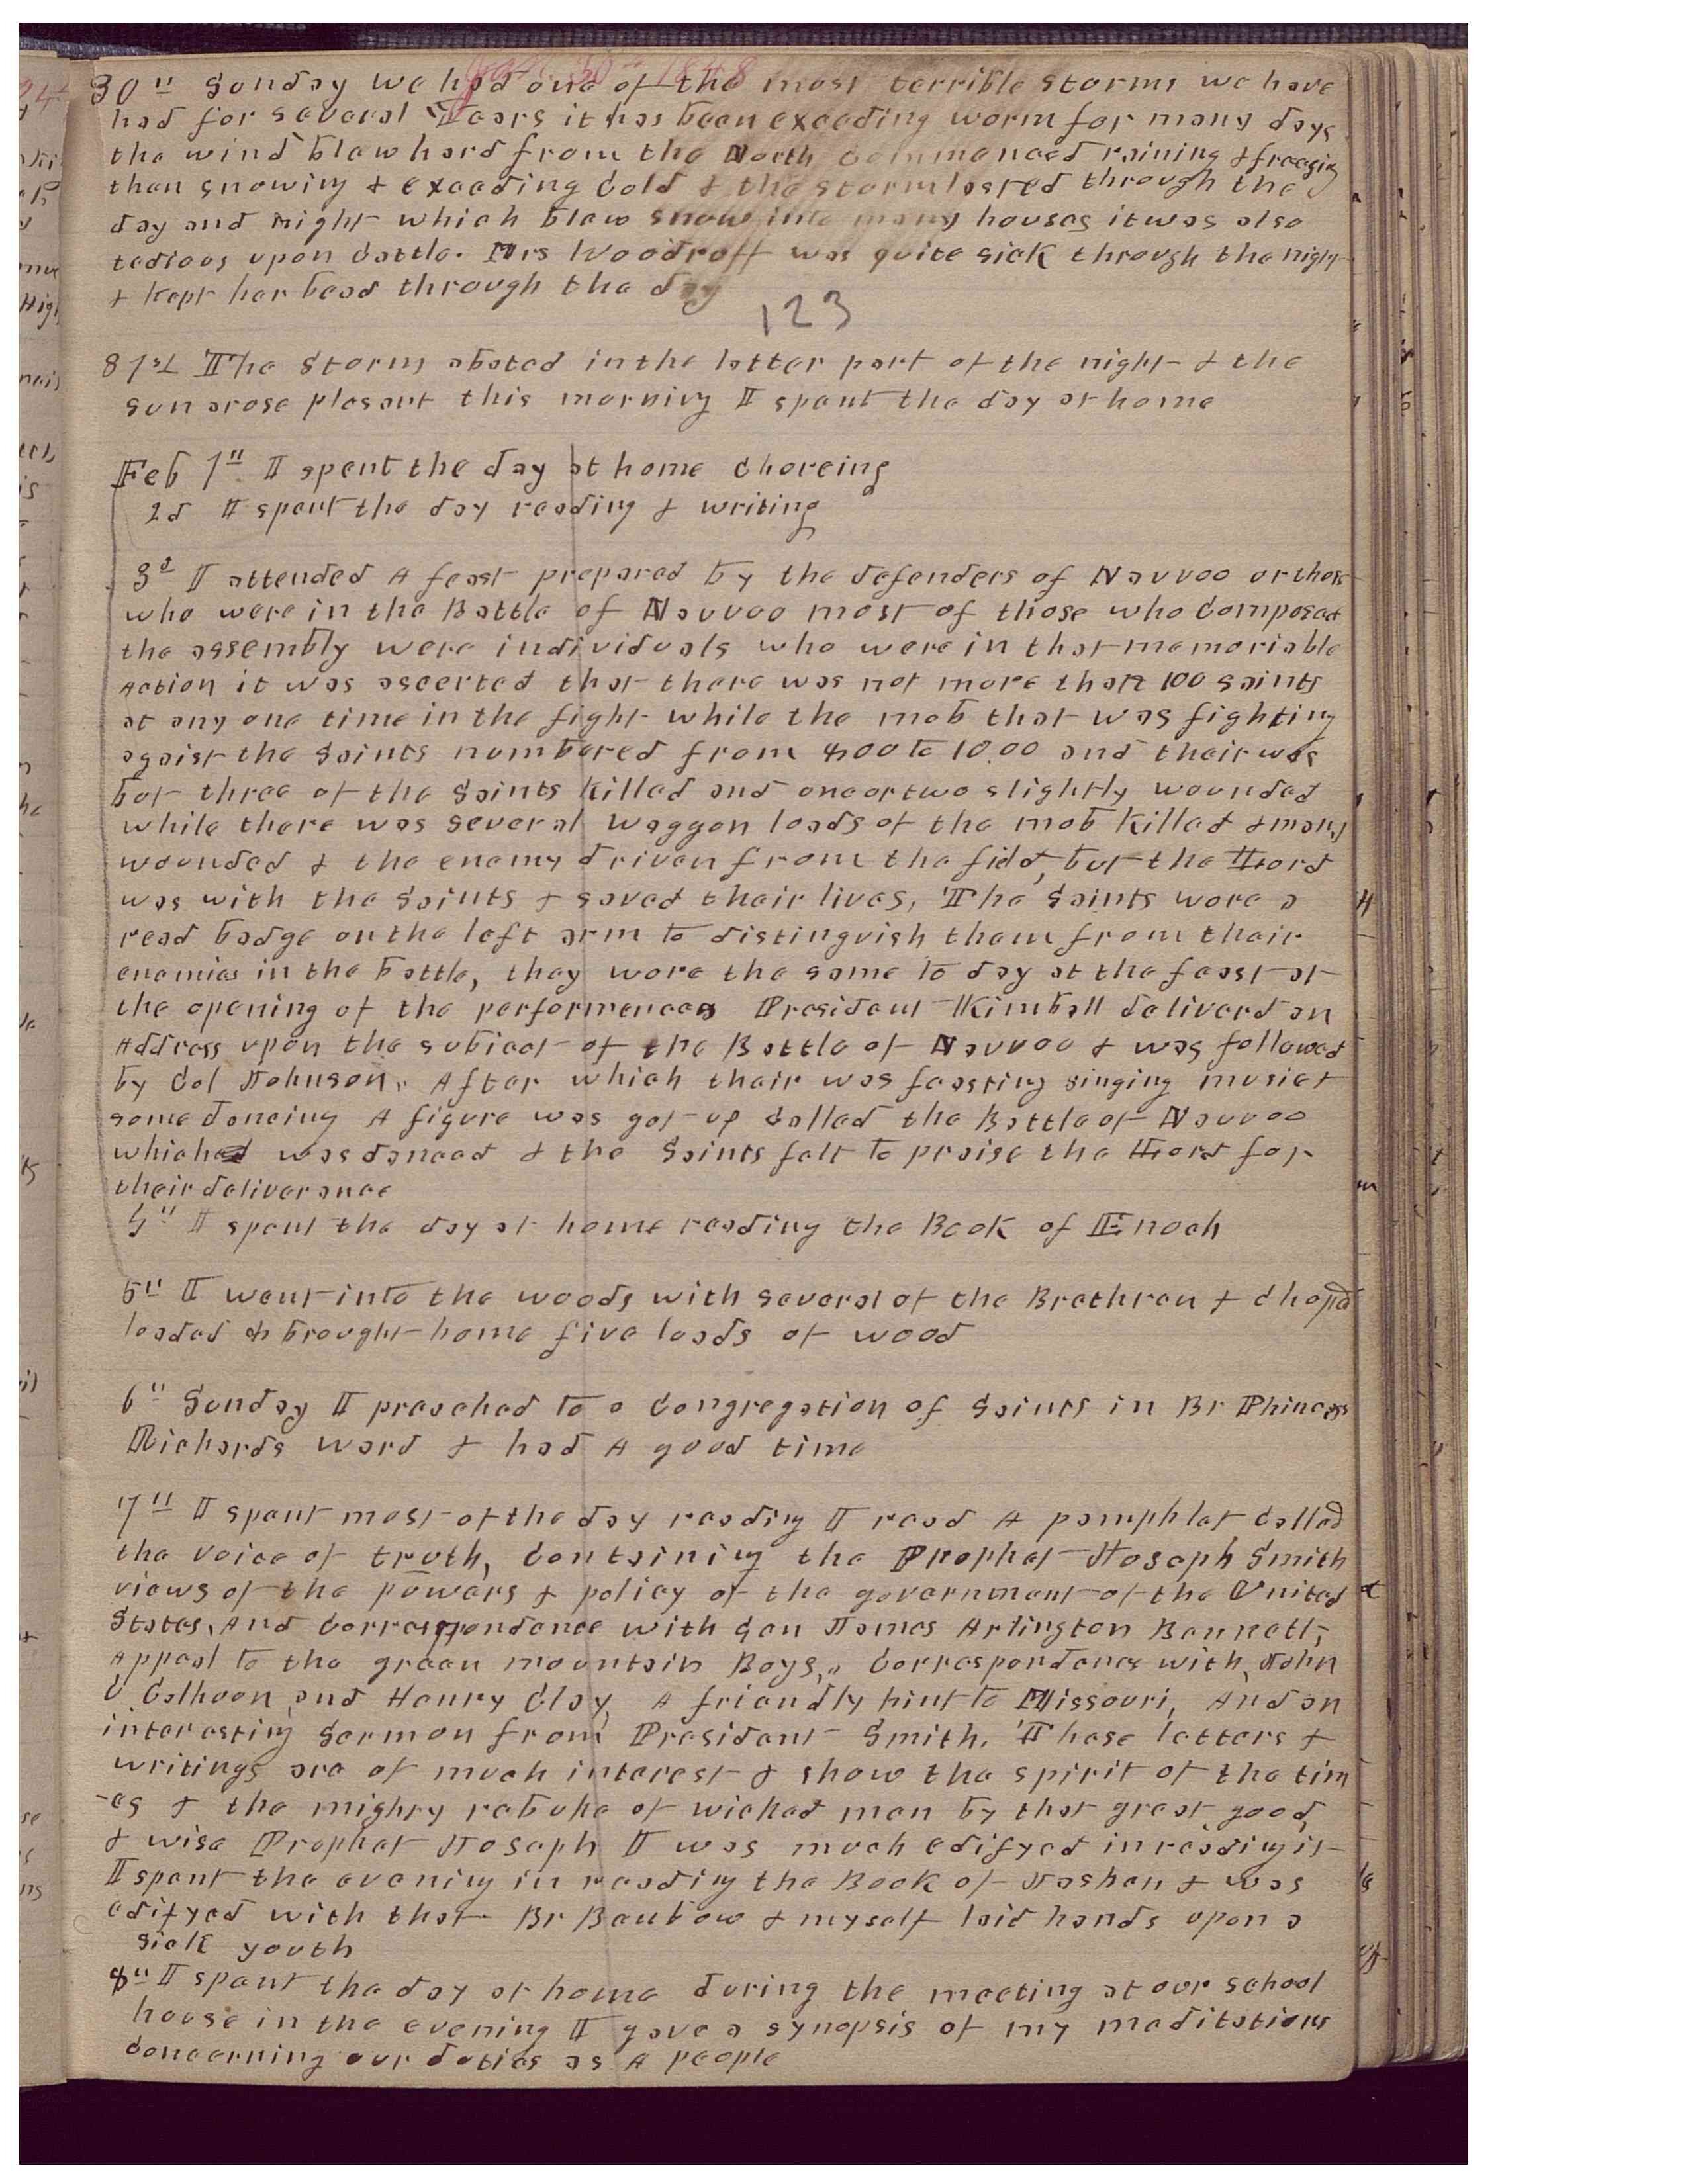 Jan 30th 1848
30th Sunday we had one of the most terrible storms we have
had for several Years it has been exceding warm for many days
the wind blew hard from the North commenced raining & freezig
then snowing & exceeding Cold & the storm lasted through the
day and night which blew snow into many houses it was also
tedious upon Cattle. Mrs Woodruff was quite sick through the night
& kept her bead through the day
123
31st The Storm abated in the latter part of the night & the
sun arose plesant this morning I spent the day at home
Feb 1st I spent the day at home choreing
2d I spent the day reading & writing
3d I attended A feast prepared by the defenders of Nauvoo or those
who were in the Battle of Nauvoo most of those who composed
the assembly were individuals who were in that memoriable
Action it was ascerted that there was not more than 100 saints
at any one time in the fight while the mob that was fighting
agaist the Saints numbered from 800 to 10.00 and thair was
but three of the Saints killed and one or two slightly wounded
while there was several waggon loads of the mob killed & many
wounded & the enemy driven from the fild, but the Lord
was with the Saints & saved thair lives, The Saints wore a
read badge on the left arm to distinguish them from thair
enemies in the battle, they wore the same to day at the feast at
the opening of the performences President Kimball deliverd an
Address upon the subject of the Battle of Nauvoo & was followed
by Col Johnson. After which thair was feasting singing music &
some dancing A figure was got up called the Battle of Nauvoo
which was danced & the Saints felt to praise the Lord for
their deliverance
4th I spent the day at home reading the Book of Enoch
5th I went into the woods with several of the Brethren & choped
loaded & brought home five loads of wood
6th Sunday I preached to a Congregation of Saints in Br Phineas
Richards ward & had A good time
7th I spent most of the day reading I read A pamphlet called
the voice of truth, Containing the Prophet Joseph Smith
views of the powers & policy of the government of the United
States, And Correspondence with Gen James Arlington Bennett,
Appeal to the green mountain Boys,,, Correspondence with, John
C Calhoon, and Henry Clay, A friendly hint to Missouri, And an
interesting Sermon from President Smith. These letters &
writings are of much interest & show the spirit of the tim
-es & the mighty rebuke of wicked men by that great good,
& wise Prophet Joseph I was much edifyed in reading it
I spent the evening in reading the Book of Jashen & was
edifyed with that Br Benbow & myself laid hands upon a
sick youth
8th I spent the day at home during the meeting at our school
house in the evening I gave a synopsis of my meditations
concerning our duties as A people